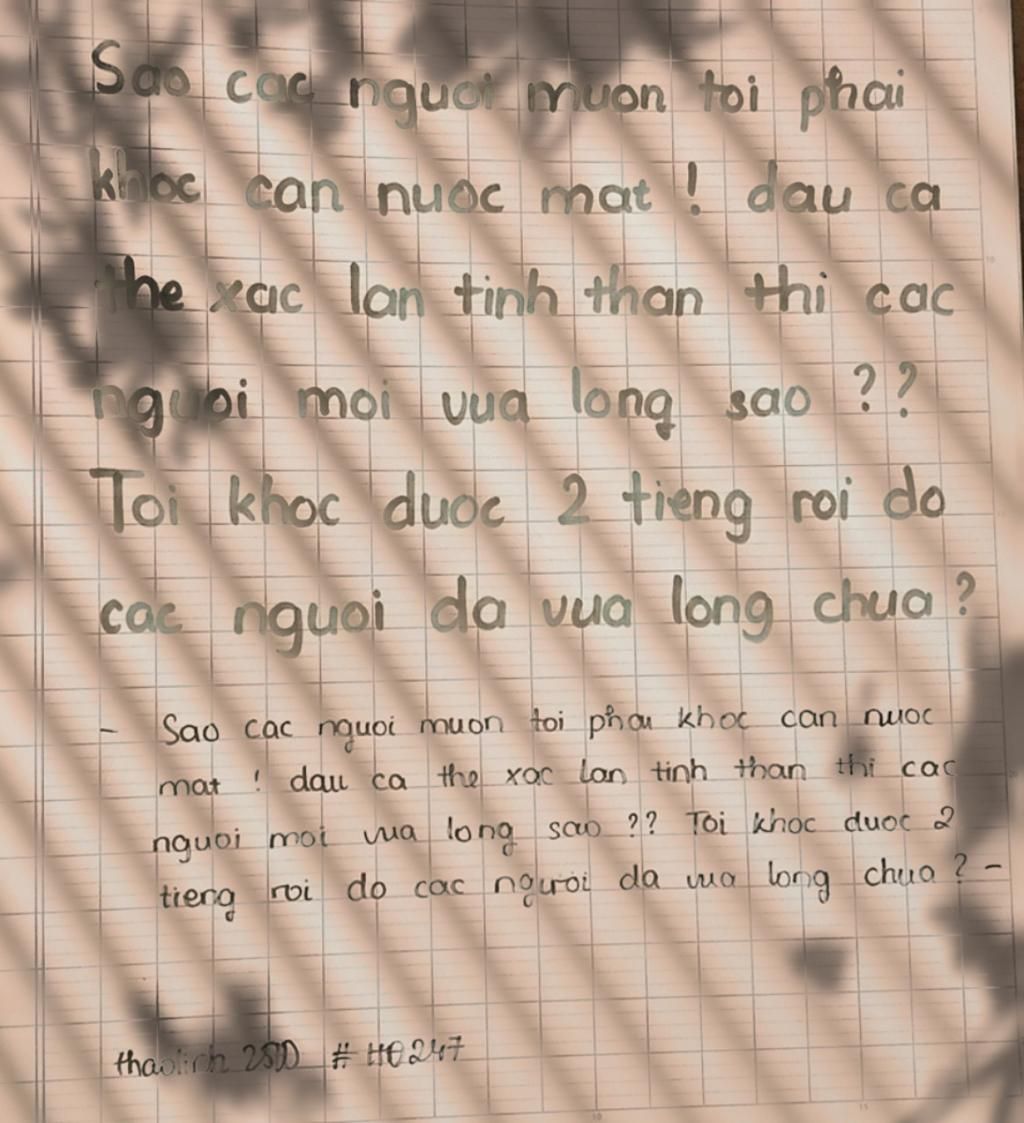 Sao cac nguoi muon toi phai
khoc can nuoc mat ! dau ca
the xac lan tinh than thi cac
nguoi moi vua long sao ??
Toi khoc duoc 2 tieng roi do
cac nguoi da vua long chua ?
- Sao cac nguoi muon toi phai khoc can nuoc
mat ! dau ca the xac lan tinh than thi cac
nguoi moi vua long sao ?? Toi khoc duoc 2
tieng roi do cac nguoi da vua long chua ? -